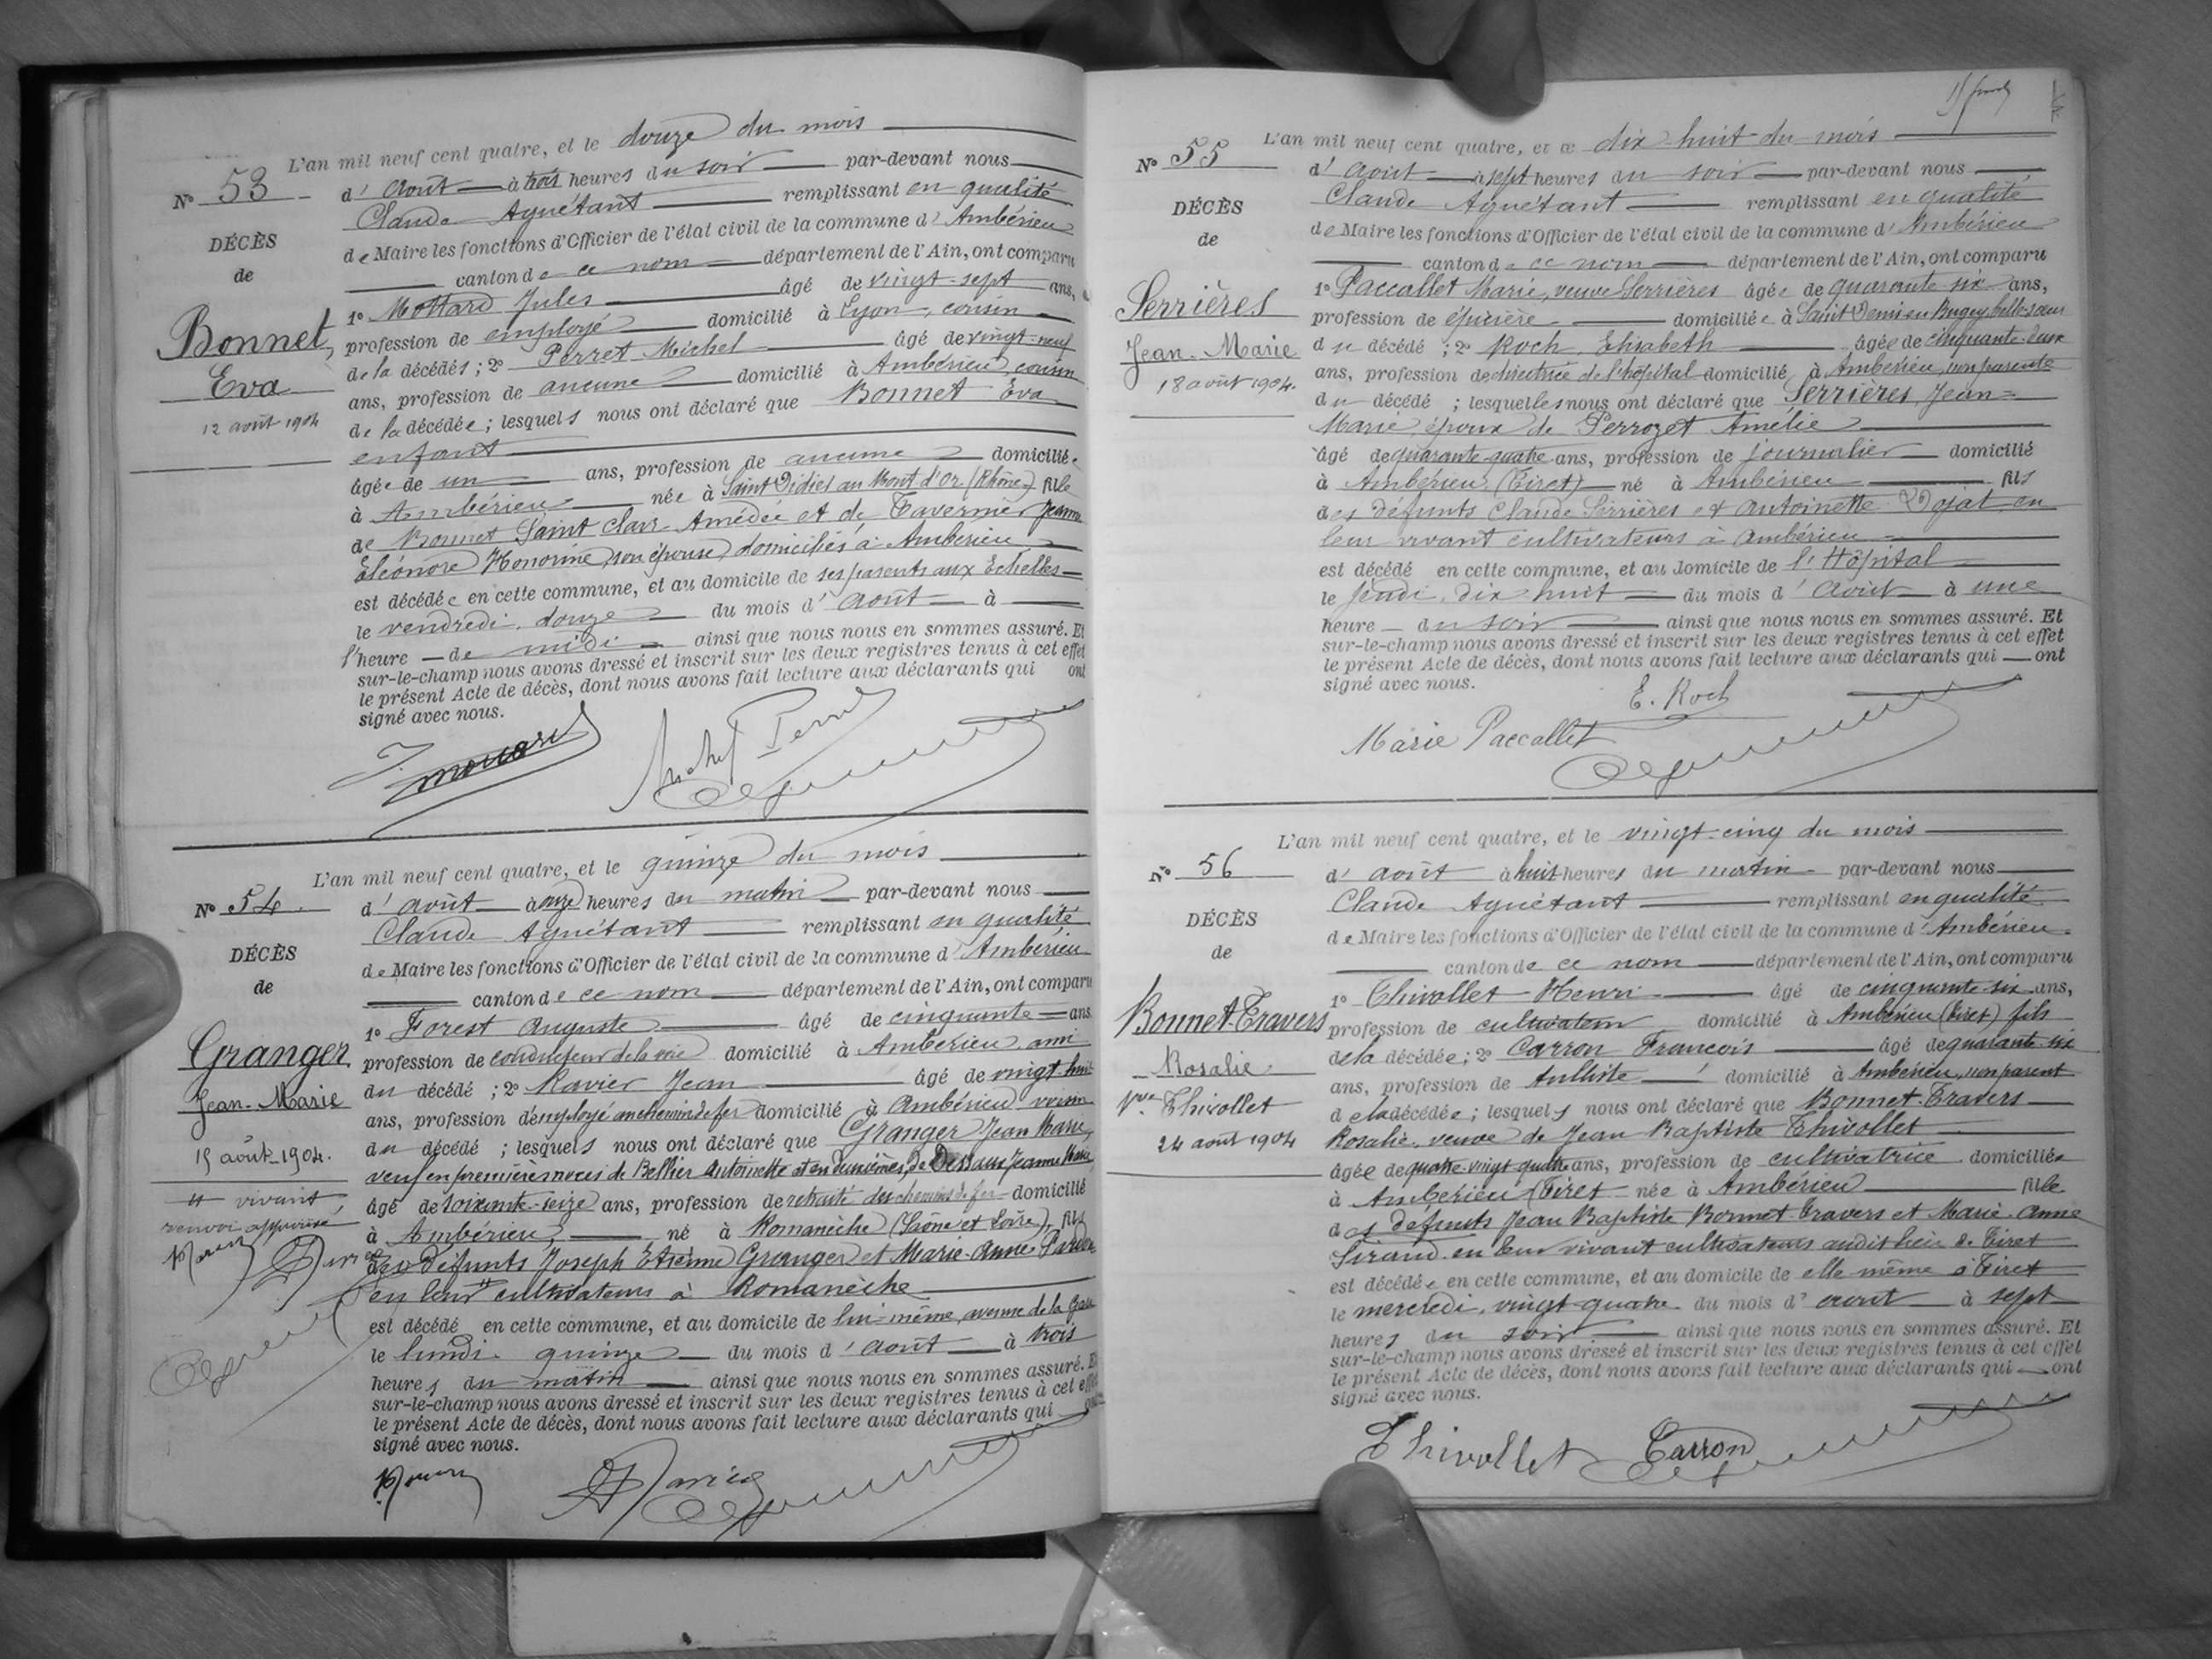 L'an mil neuf cent quatre, et le douze du mois
N° 53
d'août à trois heures du soir par-devant nous
Claude Aguétant remplissant en qualité
DÉCÈS
de Maire les fonctions d'Officier de l'état civil de la commune d'Ambérieu
de
canton de ce nom département de l'Ain, ont comparu
1° Mottard Jules âgé de vingt-sept ans,
Bonnet,
profession de employé domicilié à Lyon, cousin
Eva
de la décédés ; 2° Perret Michel âgé de vingt-neuf
12 août 1904
ans, profession de aucune domicilié à Ambérieu, cousin
de la décédée ; lesquels nous ont déclaré que Bonnet Eva
enfant
âgée de un ans, profession de aucune domiciliée
à Ambérieu née à Saint Didier au Mont d'Or (Rhône) fille
de Bonnet Saint Clair Amédée et de Tavernier Jeanne
Eléonore Honorine, son épouse, domiciliés à Ambérieu
est décédée en cette commune, et au domicile de ses parents aux Echelles
le vendredi douze du mois d'août à
l'heure de midi ainsi que nous nous en sommes assuré. Et
sur-le-champ nous avons dressé et inscrit sur les deux registres tenus à cet effet
le présent Acte de décès, dont nous avons fait lecture aux déclarants qui ont
signé avec nous.
Michel Perret
L'an mil neuf cent quatre, et le quinze du mois
N° 54
d'août à onze heures du matin par-devant nous
Claude Aguétant remplissant en qualité
DÉCÈS
de Maire les fonctions d'Officier de l'état civil de la commune d'Ambérieu
de
canton de ce nom département de l'Ain, ont comparu
1° Forest Auguste âgé de cinquante ans
Granger
profession de conducteur de la voie domicilié à Ambérieu, ami
Jean-Marie
du décédé ; 2° Ravier Jean âgé de vingt-huit
15 août 1904.
ans, profession d'employé au chemin de fer domicilié à Ambérieu voisin
du décédé ; lesquels nous ont déclaré que Granger Jean Marie,
veuf en premières noces de Bellier Antoinette et en deuxièmes, de Jeanne Marie
# vivant
renvoi approuvé
âgé de soixante-seize ans, profession de retraité des chemins de fer domicilié
à Ambérieu, né à Romanèche (Saône et Loire), fils
des défunts Joseph Etienne Granger et Marie-Anne
en leur # cultivateurs à Romanèche
est décédé en cette commune, et au domicile de lui-même, avenue de la Gare
le lundi quinze du mois d'août à trois
heures du matin ainsi que nous nous en sommes assuré. Et
sur-le-champ nous avons dressé et inscrit sur les deux registres tenus à cet effet
le présent Acte de décès, dont nous avons fait lecture aux déclarants qui
signé avec nous.
L'an mil neuf cent quatre, et le dix-huit du mois
N° 55
d'août à sept heures du soir par-devant nous
Claude Aguétant remplissant en qualité
DÉCÈS
de Maire les fonctions d'Officier de l'état civil de la commune d'Ambérieu
de
canton de ce nom département de l'Ain, ont comparu
1° Paccallet Marie, veuve Serrières âgée de quarante-six ans,
Serrières
profession de épicière domiciliée à Saint Denis en Bugey belle-sœur
Jean-Marie
du décédé ; 2° Koch Elisabeth âgée de cinquante-deux
18 août 1904.
ans, profession de directrice de l'hôpital domicilié à Ambérieu, non parente
du décédé ; lesquelles nous ont déclaré que Serrières Jean-
Marie, époux de Perrozet Amélie
âgé de quarante-quatre ans, profession de journalier domicilié
à Ambérieu (Tiret) né à Ambérieu fils
des défunts Claude Serrières et Antoinette Dojat en
leur vivant cultivateurs à Ambérieu
est décédé en cette commune, et au domicile de l'Hôpital
le jeudi, dix-huit du mois d'août à une
heure du soir ainsi que nous nous en sommes assuré. Et
sur-le-champ nous avons dressé et inscrit sur les deux registres tenus à cet effet
le présent Acte de décès, dont nous avons fait lecture aux déclarants qui ont
signé avec nous.
E. Koch
Marie Paccallet
L'an mil neuf cent quatre, et le vingt-cinq du mois
N° 56
d'août à huit heures du matin par-devant nous
Claude Aguétant remplissant en qualité
DÉCÈS
de Maire les fonctions d'Officier de l'état civil de la commune d'Ambérieu
de
canton de ce nom département de l'Ain, ont comparu
1° Thivollet Henri âgé de cinquante-six ans,
Bonnet-Travers
profession de cultivateur domicilié à Ambérieu (Tiret) fils
Rosalie
de la décédée ; 2° Carron François âgé de quarante-six
ans, profession de tulliste domicilié à Ambérieu, non parent
Vve Thivollet
de la décédée ; lesquels nous ont déclaré que Bonnet-Travers
24 août 1904
Rosalie, veuve de Jean Baptiste Thivollet
âgée de quatre-vingt-quatre ans, profession de cultivatrice domiciliée
à Ambérieu (Tiret née à Ambérieu fille
des défunts Jean Baptiste Bonnet-Travers et Marie-Anne
Sirand en leur vivant cultivateurs audit lieu de Tiret
est décédée en cette commune, et au domicile de elle même à Tiret
le mercredi, vingt-quatre du mois d'août à sept
heures du soir ainsi que nous nous en sommes assuré. Et
sur-le-champ nous avons dressé et inscrit sur les deux registres tenus à cet effet
le présent Acte de décès, dont nous avons fait lecture aux déclarants qui ont
signé avec nous.
Thivollet Carron